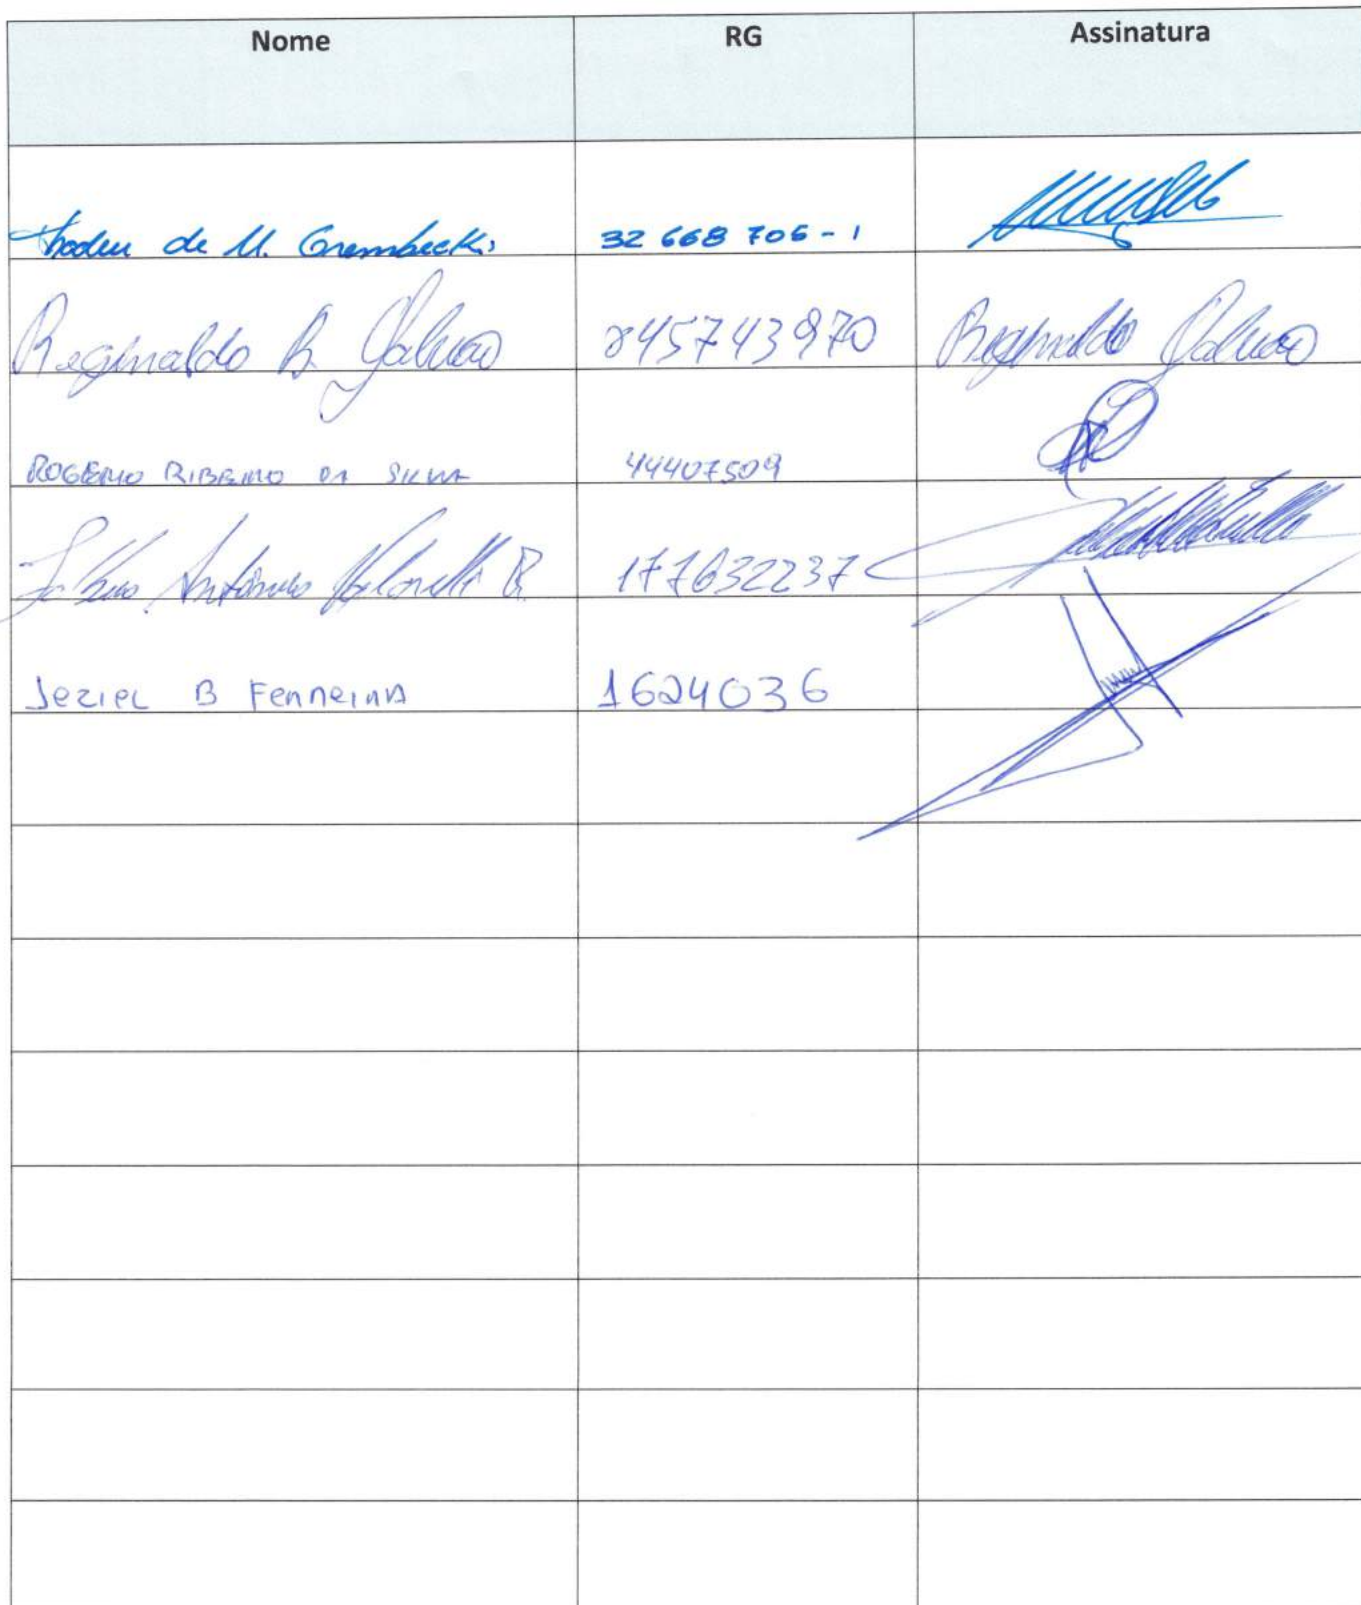 Nome RG Assinatura
de M. 32 668 706-1
Reginaldo B. Galvao 245743970 Reginaldo Galvao
ROGERIO RIBEIRO DA SILVA 44407509
Antônio 177632237
Jeziel B Ferreira 1624036